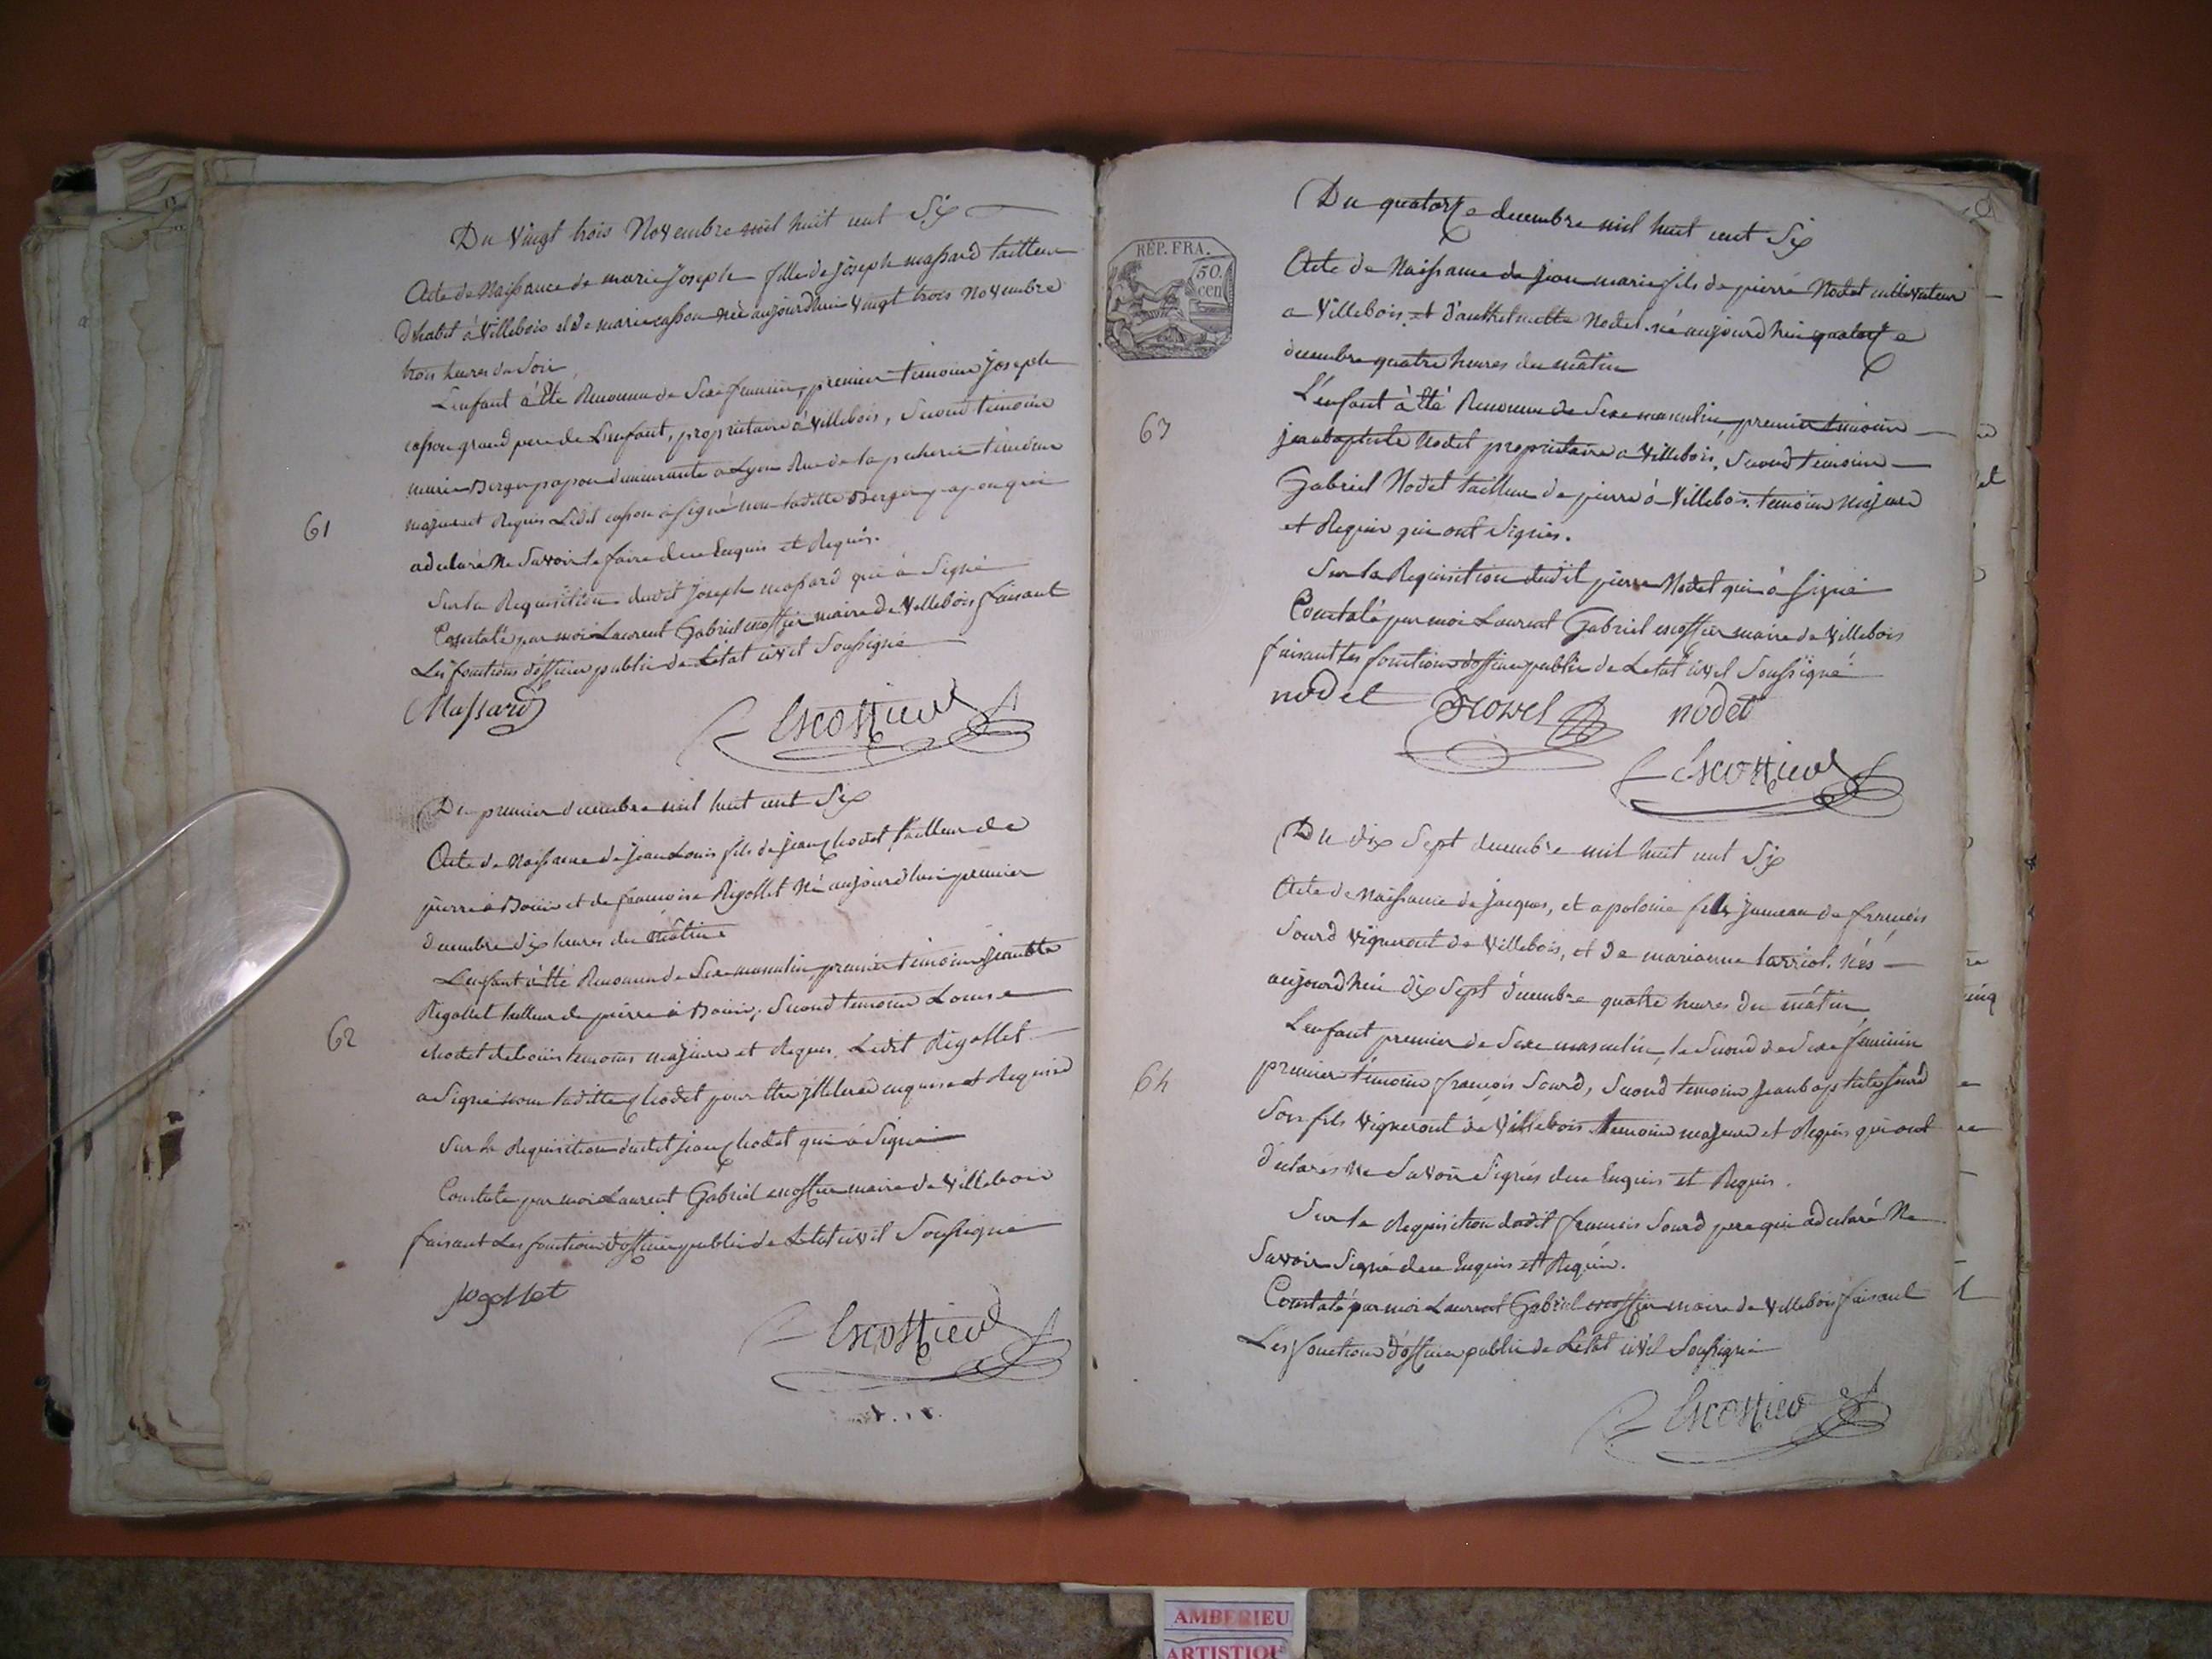 Du Vingt trois Novembre mil huit cent Six
Acte de Naissance de marie Joseph fille de joseph massard tailleur
d'habit à Villebois et de marie casson née aujourdhui Vingt trois Novembre
trois heures du Soir
L'enfant à Eté Reconnu de Sexe feminin, premier temoin Joseph
casson grand pere de L'enfant, proprietaire à Villebois, Second temoin
marie Berger demeurante a Lyon Rue de la temoins
61
majeurs et Requis Ledit casson a Signé non ladite Berger
a declaré Ne Savoir le faire de ce Enquis et Requis.
Sur la Requisition dudit Joseph massard qui à Signé
Constaté par moi Laurent Gabriel escoffier maire de Villebois faisant
Les fonctions d'officier public de L'état civil Soussigné
Massard Escoffier
Du premier decembre mil huit cent Six
Acte de Naissance de Jean Louis fils de jean chodet tailleur de
pierre à Bouis et de francoise Rigollet Né aujourdhui premier
decembre dix heures du mâtin
L'enfant à Eté Reconnu de Sexe masculin, premier temoin jean bte
Rigollet tailleur de pierre à Bouis, Second temoin Louise
62
chodet de bouis temoins majeurs et Requis. Ledit Rigollet
a Signé non ladite chodet pour être illiterée enquise et Requise
Sur la Requisition dudit jean chodet qui à Signé
Constaté par moi Laurent Gabriel escoffier maire de Villebois
faisant Les fonctions d'officier public de L'état civil Soussigné
Escoffier
Du quatorze decembre mil huit cent Six
RÉP. FRA.
50.
cen
Acte de Naissance de jean marie fils de pierre Nodet cultivateur
a Villebois, et d'anthelmette Nodet. né aujourdhui quatorze
decembre quatre heures du mâtin
L'enfant à Eté Reconnu de Sexe masculin, premier temoin
63
jean baptiste Nodet proprietaire a Villebois, Second temoin
Gabriel Nodet tailleur de pierre à Villebois. temoins majeurs
et Requis qui ont Signés.
Sur la Requisition dudit pierre Nodet qui à Signé
Constaté par moi Laurent Gabriel escoffier maire de Villebois
faisant Les fonctions d'officier public de L'etat civil Soussigné
nodet nodet
Escoffier
Du dix Sept decembre mil huit cent Six
Acte de Naissance de jacques, et apolonie fils jumeau de francois
Sourd Vigneront de Villebois, et de marianne tarriol. nés
aujourdhui dix Sept decembre quatre heures du mâtin
L'enfant premier de Sexe masculin, le Second de Sexe feminin
64
premier temoin francois Sourd, Second temoin jean baptiste Sourd
Son fils Vigneront de Villebois temoins majeurs et Requis qui ont
declarés Ne Savoir Signés de ce Enquis et Requis.
Sur la Requisition dudit francois Sourd pere qui a declaré Ne
Savoir Signé de ce Enquis et Requis.
Constaté par moi Laurent Gabriel escoffier maire de Villebois faisant
Les fonctions d'officier public de L'état civil Soussigné
Escoffier
AMBERIEU
ARTISTIQU